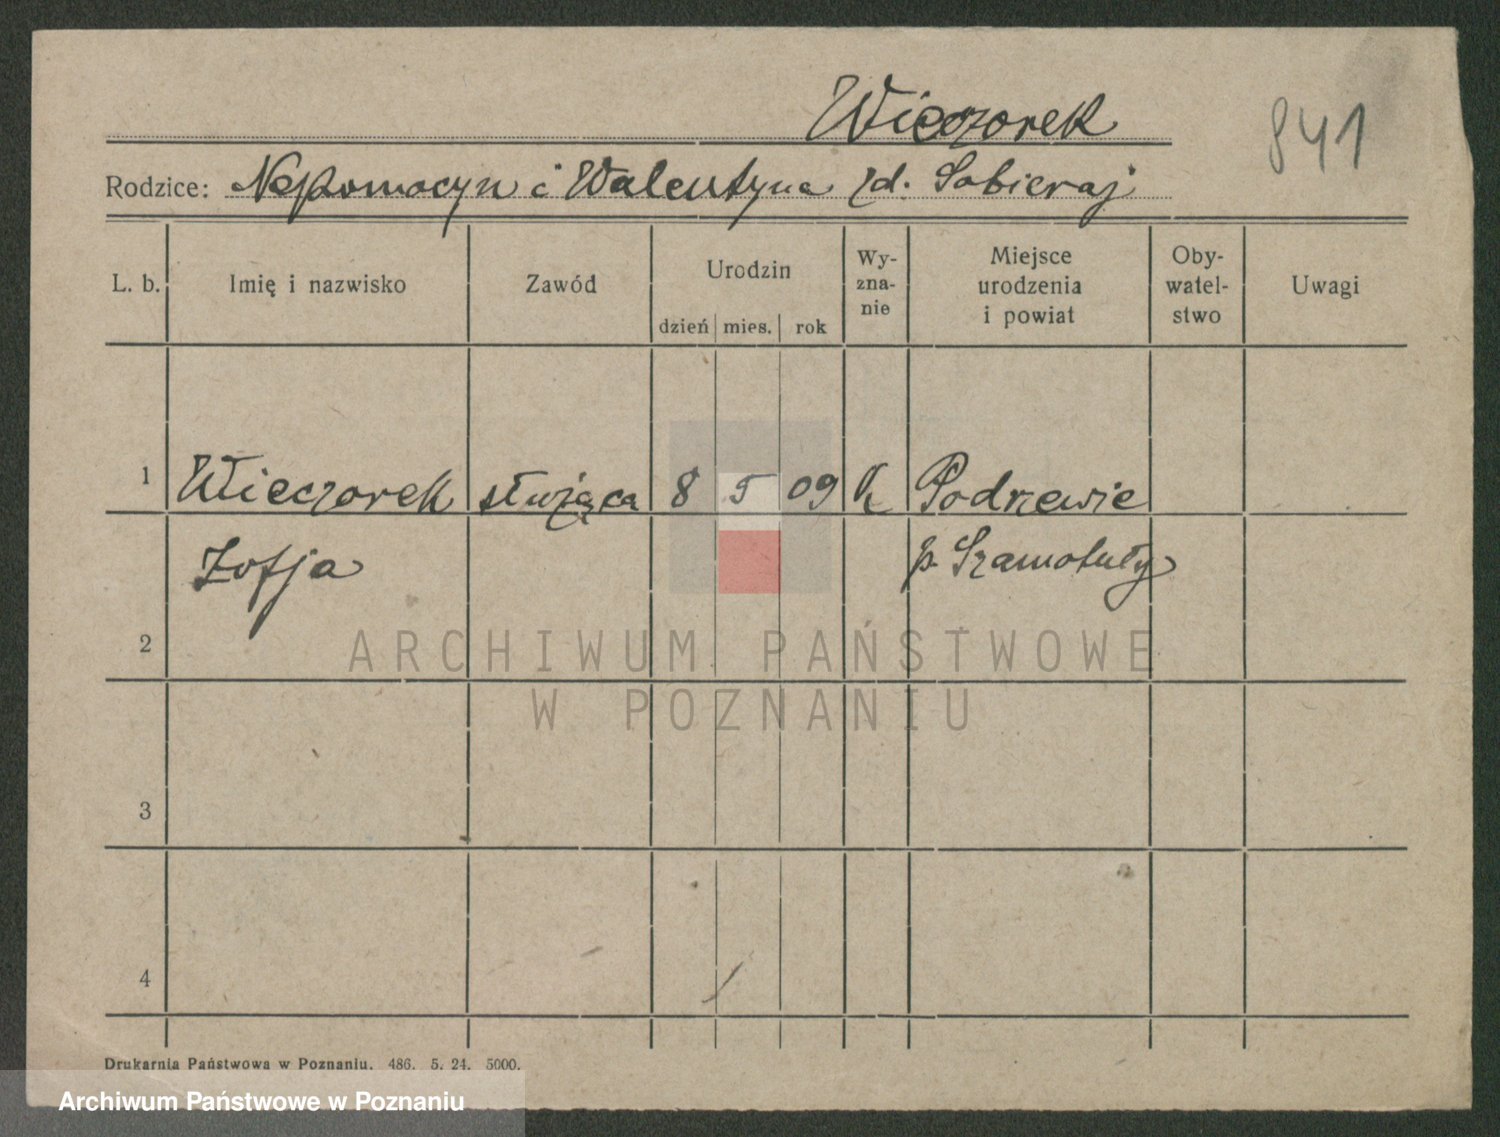 Wieczorek
841
Rodzice: Nepomocyn i Walentyna zd. Sobieraj
L. b. Imię i nazwisko Zawód Urodzin dzień mies. rok Wy-zna-nie Miejsce urodzenia i powiat Oby-watel-stwo Uwagi
1 Wieczorek służąca 8 5 09 k Podrzewie
Zofja p. Szamotuły
2
ARCHIWUM PAŃSTWOWE
W POZNANIU
3
4
Drukarnia Państwowa w Poznaniu. 486. 5. 24. 5000.
Archiwum Państwowe w Poznaniu